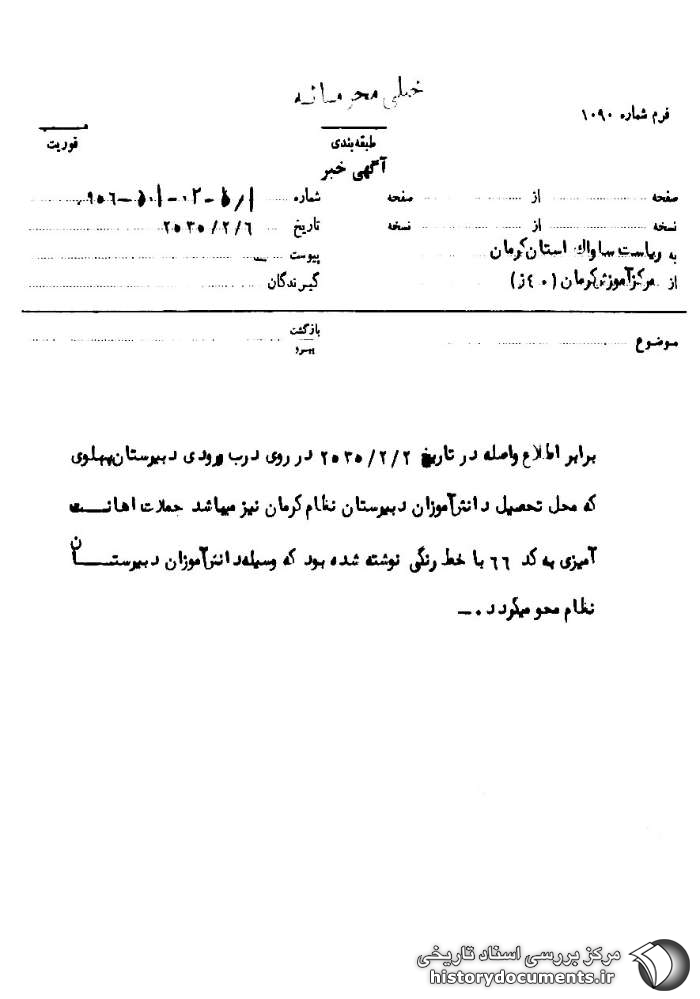 خیلی محرمانه
فرم شماره ۱۰۹۰
طبقه‌بندی
فوریت
آگهی خبر
صفحه از صفحه
شماره
نسخه از نسخه
تاریخ ۲۵۳۵/۲/۶
به ریاست ساواک استان کرمان
پیوست
از مرکز آموزش کرمان (۴۰ز)
گیرندگان
موضوع
بازگشت
پیرو
برابر اطلاع واصله در تاریخ ۲۵۳۵/۲/۲ در روی درب ورودی دبیرستان پهلوی
که محل تحصیل دانش‌آموزان دبیرستان نظام کرمان نیز میباشد جملات اهانت
آمیزی به کد ۶۶ با خط رنگی نوشته شده بود که وسیله دانش‌آموزان دبیرستان
نظام محو میگردد.
مرکز بررسی اسناد تاریخی
historydocuments.ir